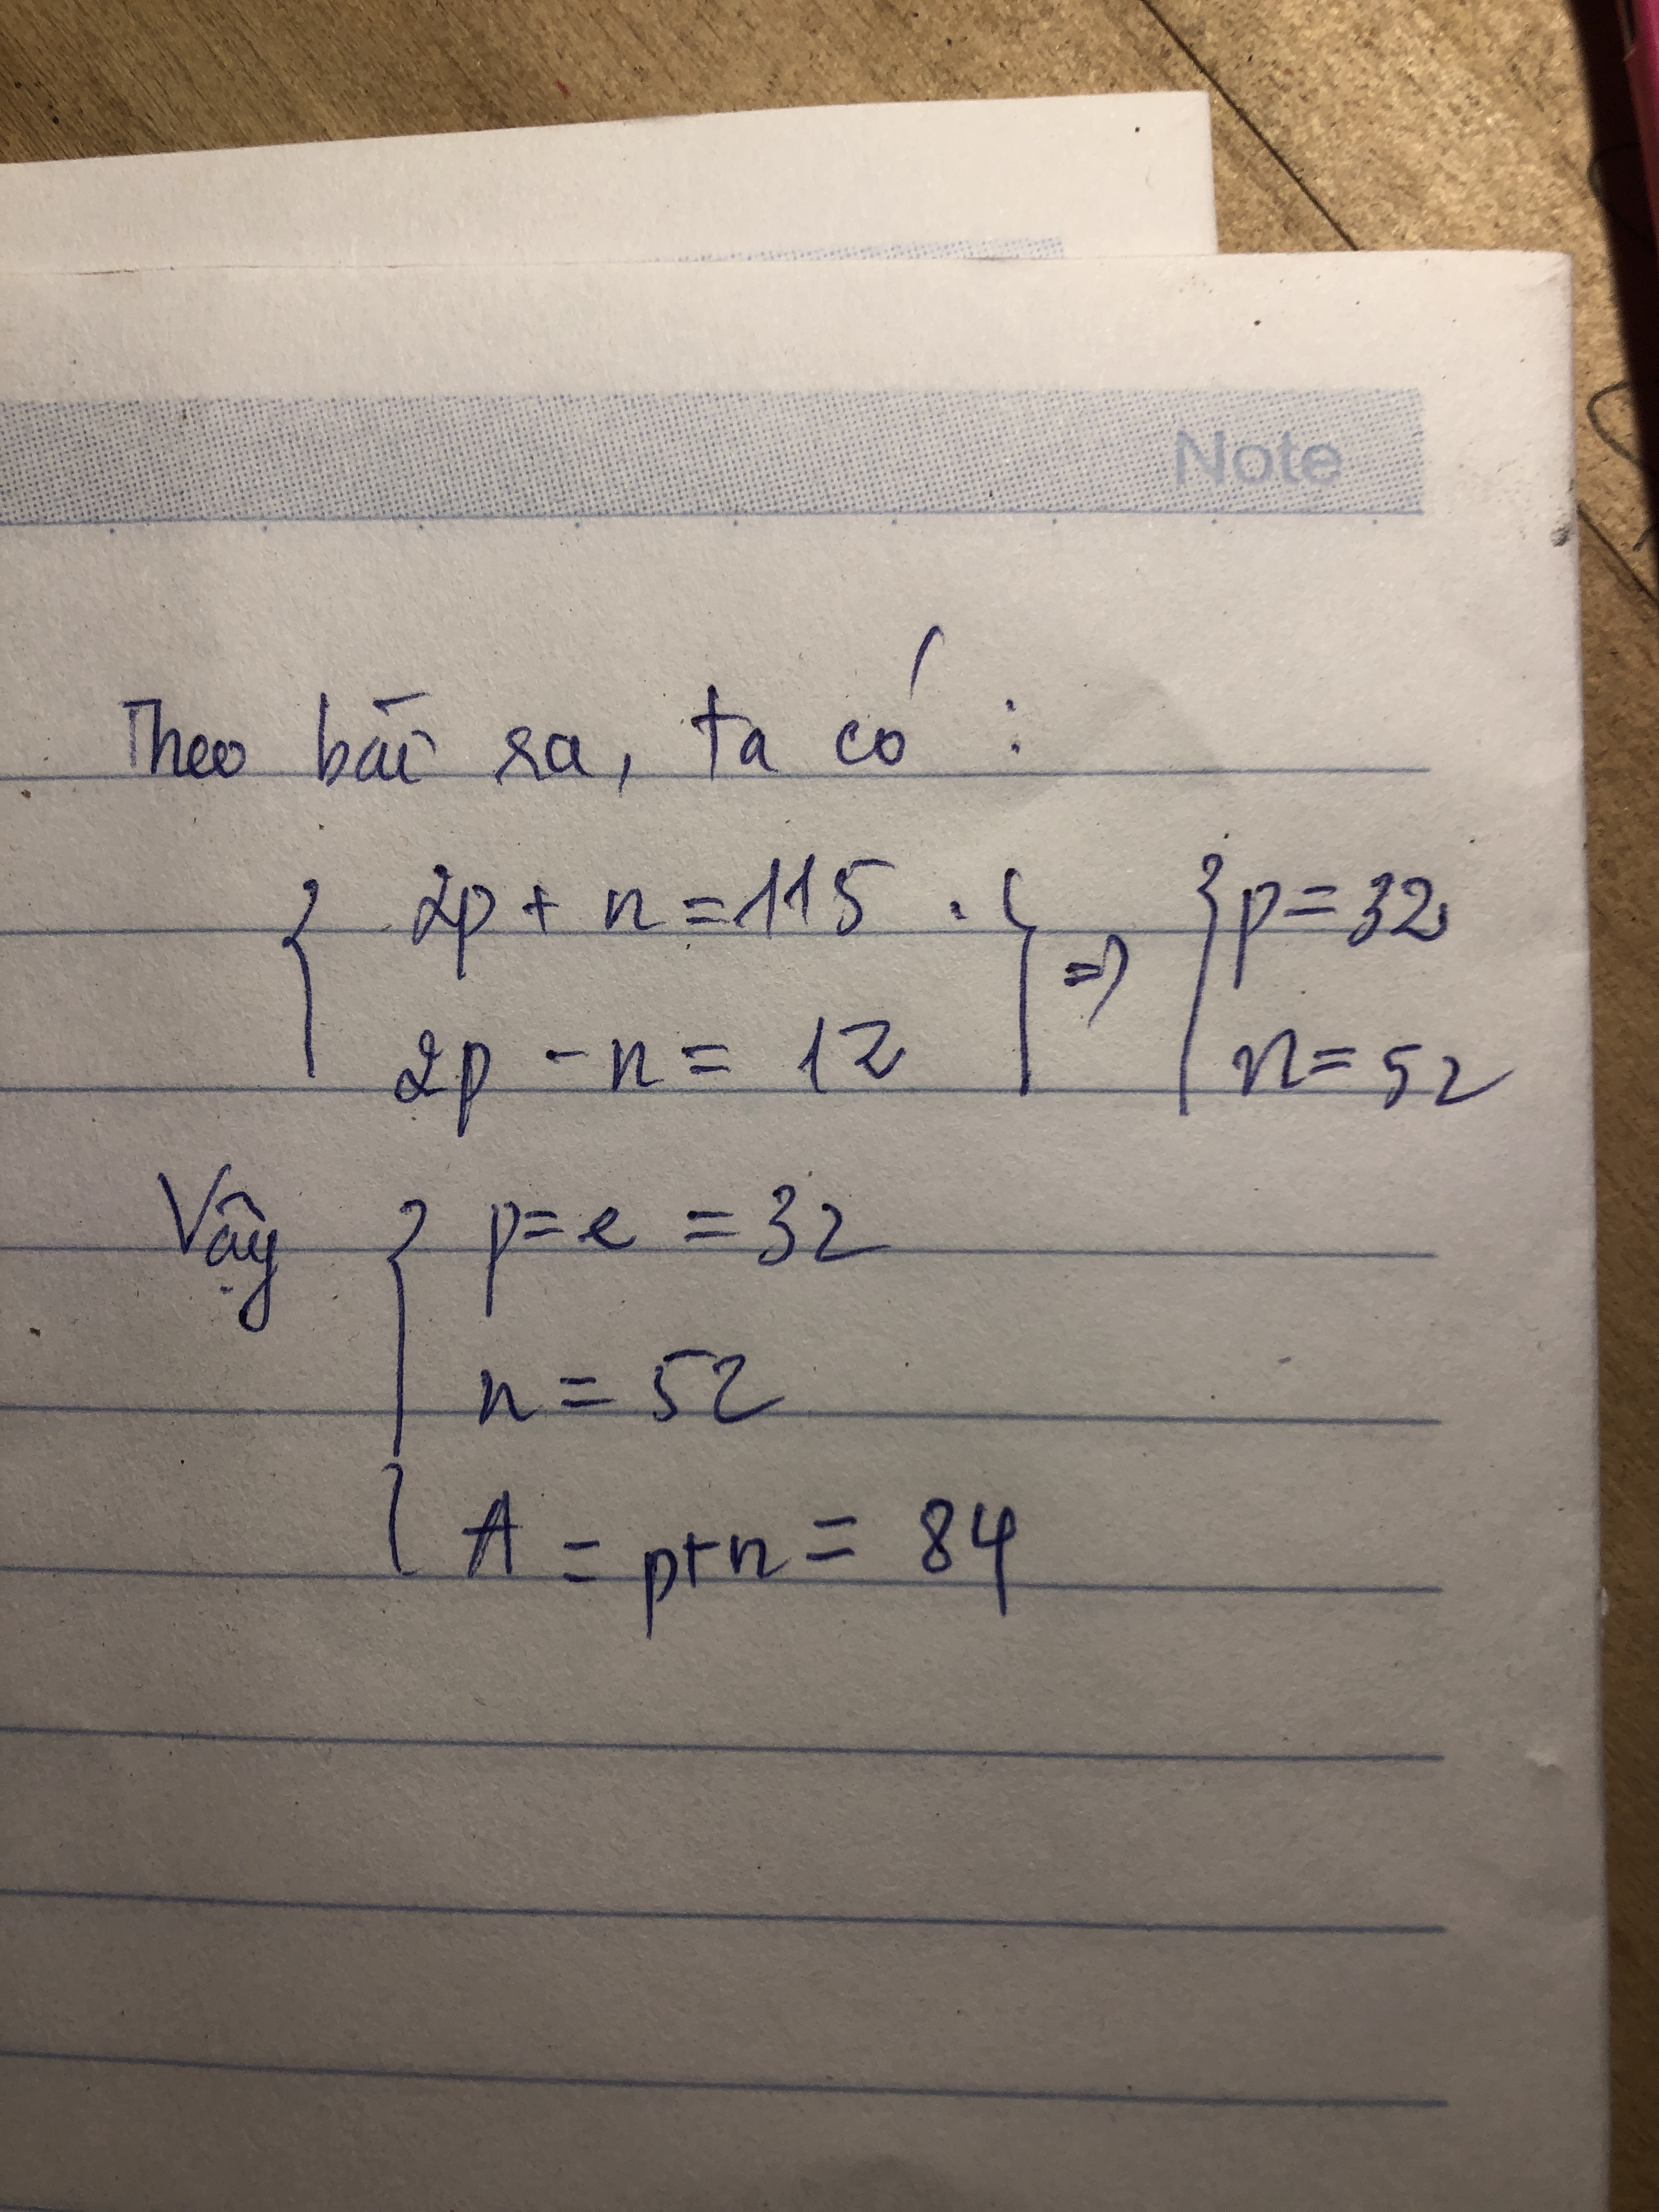 Note
Theo bài ra, ta có:
{ 2p + n = 115 . } => { p = 32
2p - n = 12 n = 52
Vậy { p = e = 32
n = 52
{ A = p+n = 84